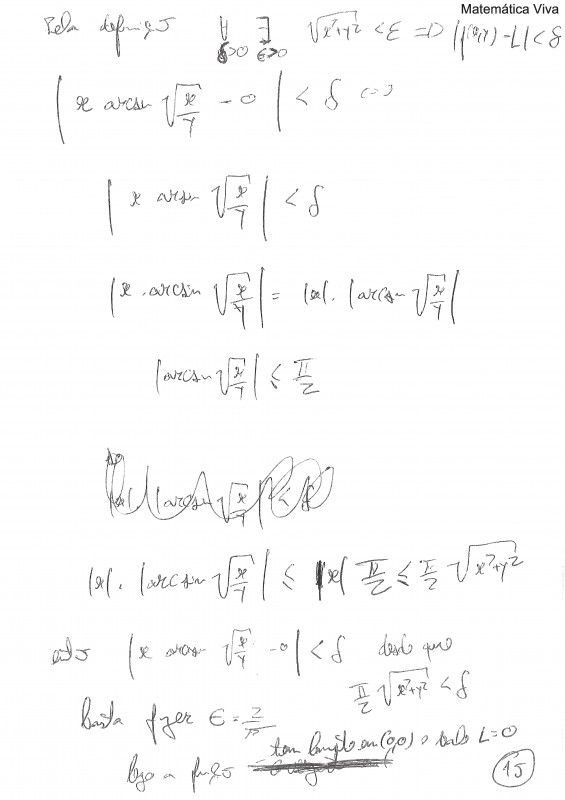 Matemática Viva
Pela definição ∀ δ>0 ∃ ε>0 √x²+y² < ε => |f(x,y) - L| < δ
| x arcsin √x/y - 0 | < δ <=>
| x arcsin √x/y | < δ
| x . arcsin √x/y | = |x| . | arcsin √x/y |
| arcsin √x/y | ≤ π/2
|x| . | arcsin √x/y | ≤ |x| π/2 ≤ π/2 √x²+y²
então | x arcsin √x/y - 0 | < δ desde que
π/2 √x²+y² < δ
Basta fazer ε = 2/π
logo a função tem limite em (0,0) sendo L=0
15